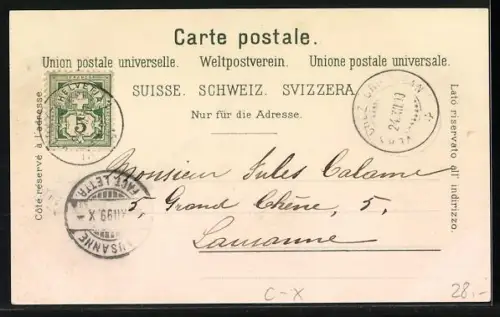 Carte postale.
Union postale universelle. Weltpostverein. Unione postale universale.
SUISSE. SCHWEIZ. SVIZZERA.
Nur für die Adresse.
Côté réservé à l'adresse.
Lato riservato all' indirizzo.
HELVETIA
5
24.XII.99
Monsieur Jules Calame
5, Grand Chêne, 5,
Lausanne
LAUSANNE
XII 99. X
C-X
28.-